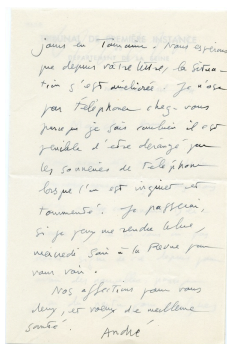 jours en Touraine. Nous espérons
que depuis votre lettre, la situa-
tion s'est améliorée. Je n'ose
pas téléphoner chez vous
parce que je sais combien il est
pénible d'être dérangé par
les sonneries de téléphone
lorsque l'on est inquiet et
tourmenté. Je passerai,
si je peux me rendre libre,
mercredi soir à la Revue pour
vous voir.
Nos affections pour vous
deux, et vœux de meilleure
santé.
André